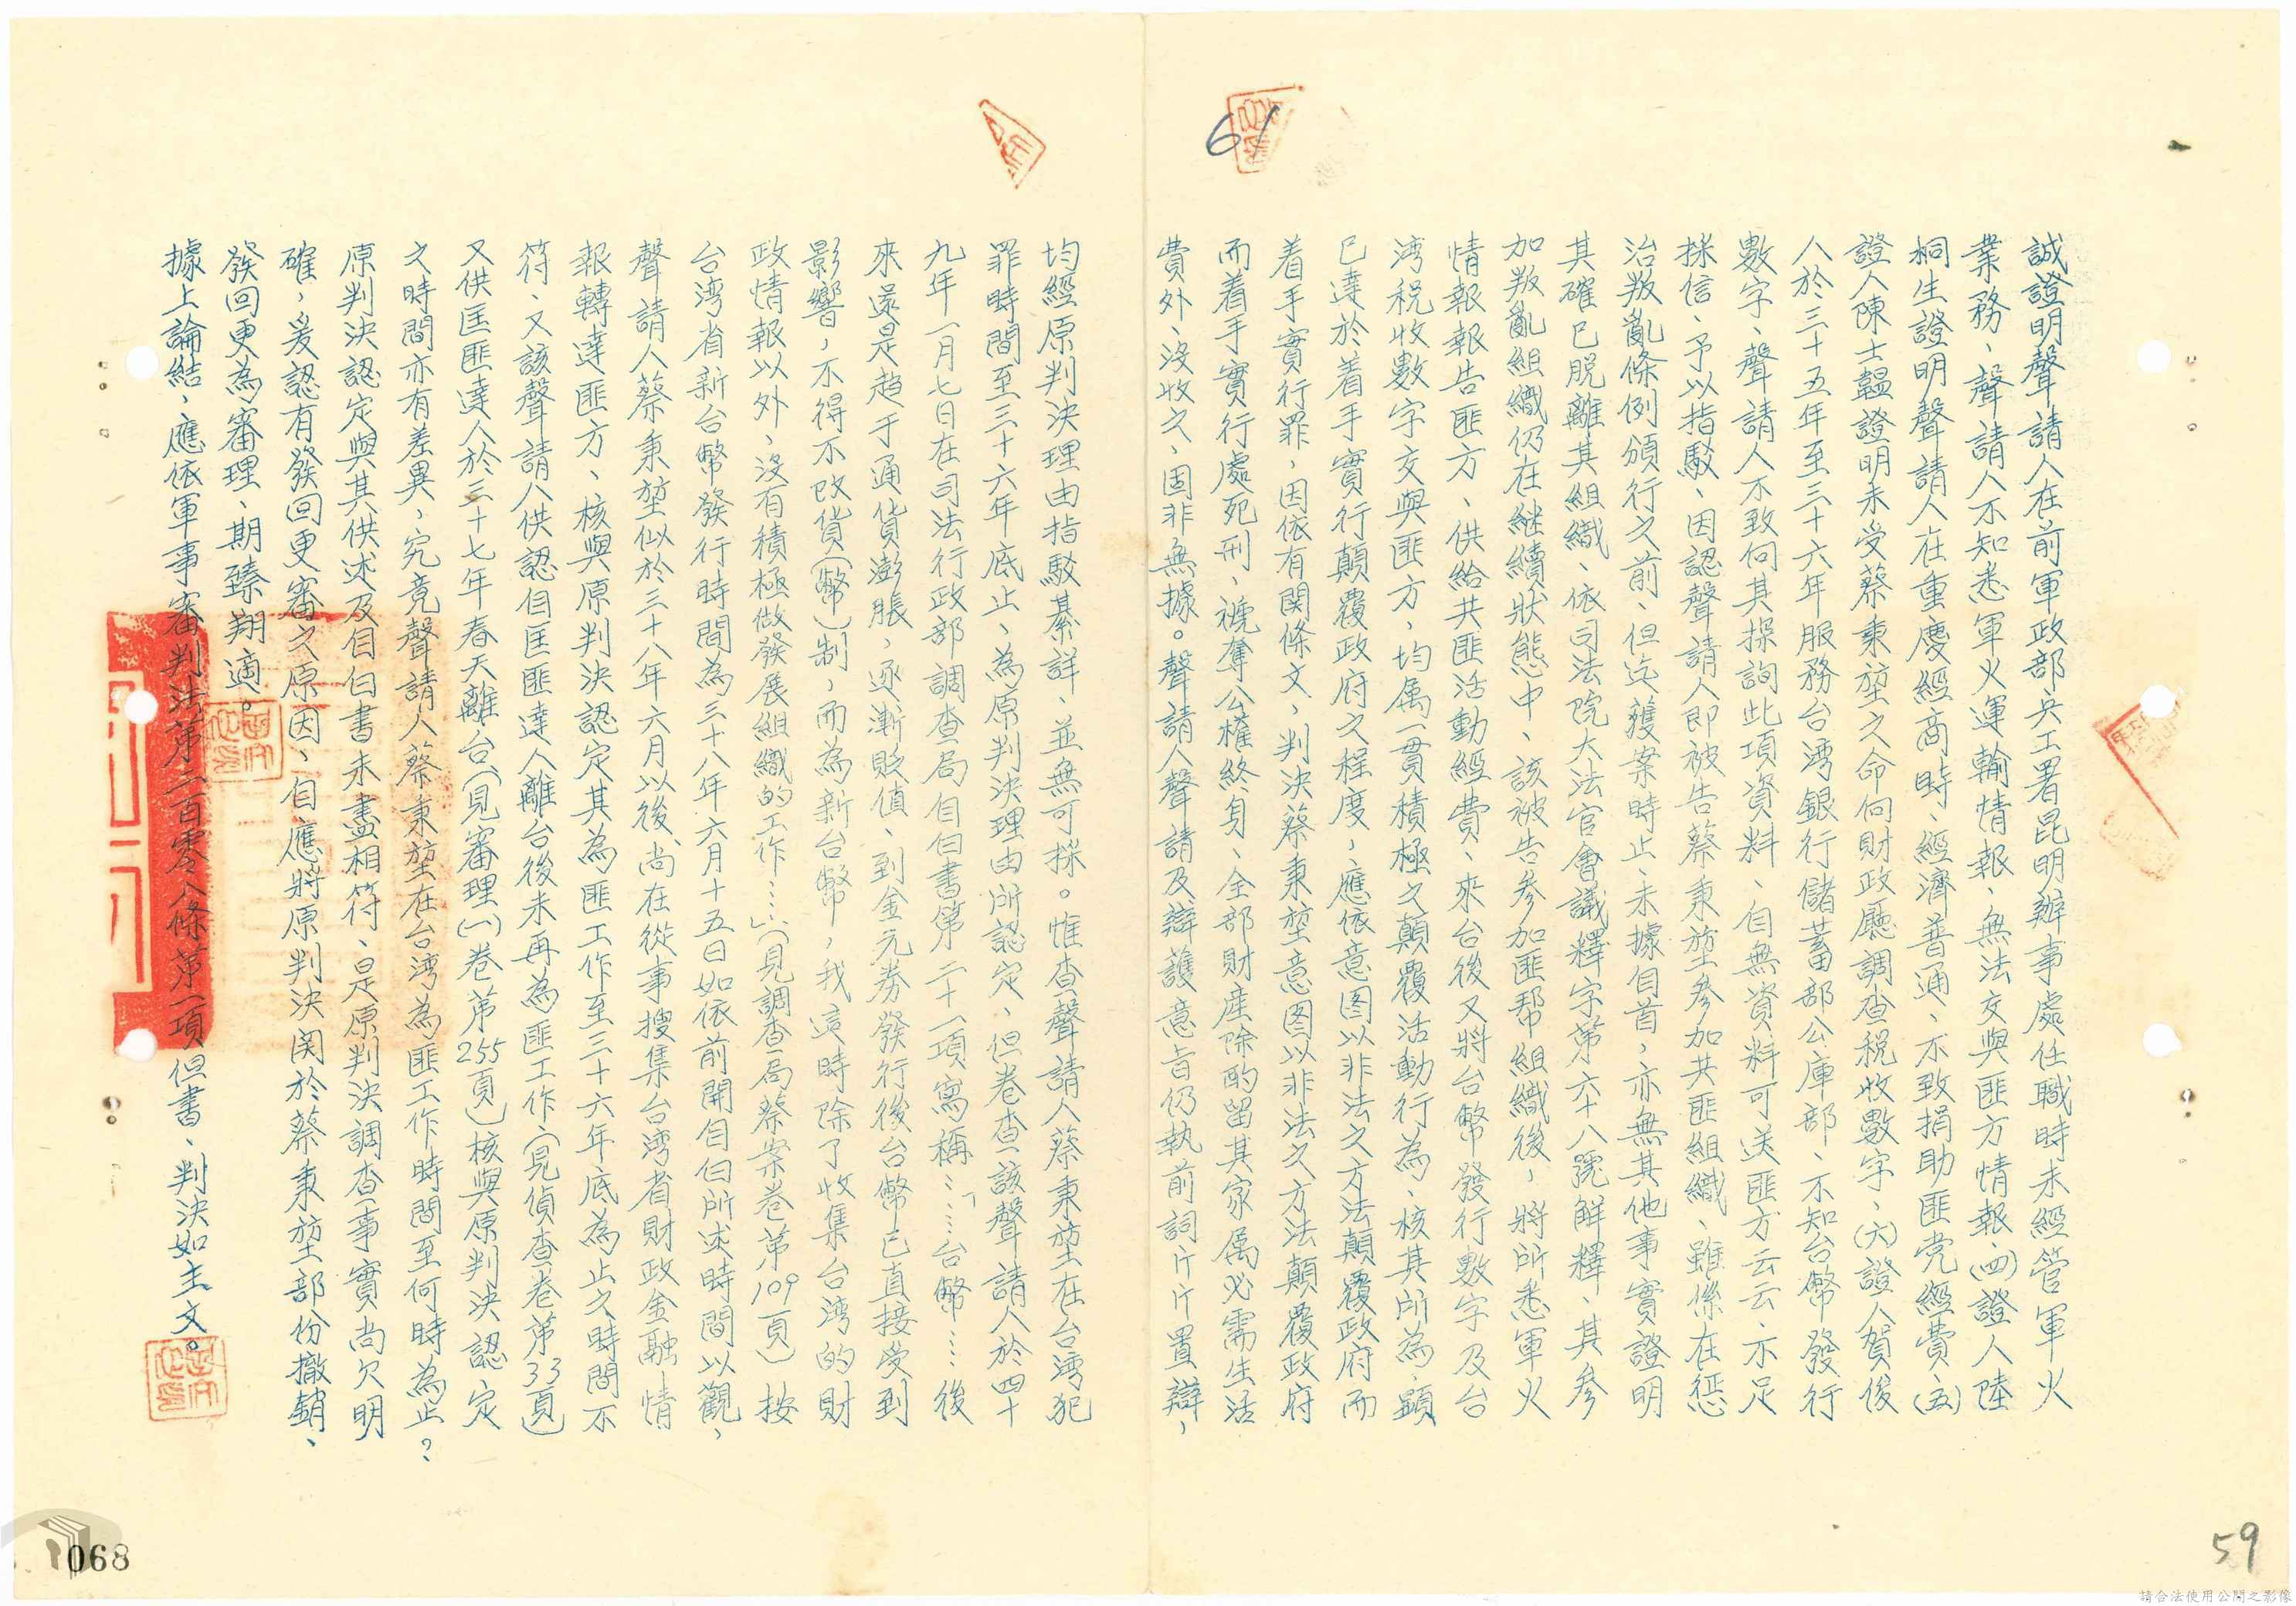 誠證明聲請人在前軍政部兵工署昆明辦事處任職時未經管軍火
業務、聲請人不知悉軍火運輸情報、無法交與匪方情報(四)證人陸
桐生證明聲請人在重慶經商時、經濟普通、不致捐助匪党經費、(五)
證人陳士韞證明未受蔡秉堃之命向財政廳調查稅收數字、(六)證人賀俊
人於三十五年至三十六年服務台湾銀行儲蓄部公庫部、不知台幣發行
數字、聲請人不致向其探詢此項資料、自無資料可送匪方云云、亦不足
採信、予以指駁、因認聲請人即被告蔡秉堃參加共匪組織、雖係在惩
治叛亂條例頒行之前、但迄獲案時止、未據自首,亦無其他事實證明
其確已脱離其組織、依司法院大法官會議釋字第六十八號解釋、其參
加叛亂組織仍在継續狀態中、該被告參加匪帮組織後,將所悉軍火
情報報告匪方、供給共匪活動經費、來台後又將台幣發行數字及台
湾稅收數字交與匪方、均属一貫積極之顛覆活動行為、核其所為、顯
已達於着手實行顛覆政府之程度,應依意图以非法之方法顛覆政府而
着手實行罪、因依有関條文、判决蔡秉堃意图以非法之方法顛覆政府
而着手實行處死刑、褫奪公權終身、全部財産除酌留其家属必需生活
費外、沒收之、固非無據。聲請人聲請及辯護意旨仍執前詞斤斤置辯,
61
均經原判决理由指駁綦詳、並無可採。惟查聲請人蔡秉堃在台湾犯
罪時間至三十六年底止、為原判决理由所認定、但卷查該聲請人於四十
九年一月七日在司法行政部調查局自白書第二十一項寫稱「……台幣……後
來還是趋于通貨澎脹,逐漸貶值、到金元券發行後台幣已直接受到
影響,不得不改貨(幣)制,而為新台幣,我這時除了收集台湾的財
政情報以外、沒有積極做發展組織的工作……」(見調查局蔡案卷第109頁)按
台湾省新台幣發行時間為三十八年六月十五日如依前開自白所述時間以觀,
聲請人蔡秉堃似於三十八年六月以後、尚在從事搜集台湾省財政金融情
報轉達匪方、核與原判决認定其為匪工作至三十六年底為止之時間不
符、又該聲請人供認自匡匪達人離台後未再為匪工作、(見偵查卷第33頁)
又供匡匪達人於三十七年春天離台(見審理(一)卷第255頁)核與原判决認定
之時間亦有差異,究竟聲請人蔡秉堃在台湾為匪工作時間至何時為止?
原判决認定與其供述及自白書未盡相符、是原判决調查事實尚欠明
確,爰認有發回更審之原因、自應將原判决関於蔡秉堃部份撤銷、
發回更為審理、期臻翔適。
據上論結,應依軍事審判法第二百零八條第一項但書、判决如主文。
59
068
請合法使用公開之影像